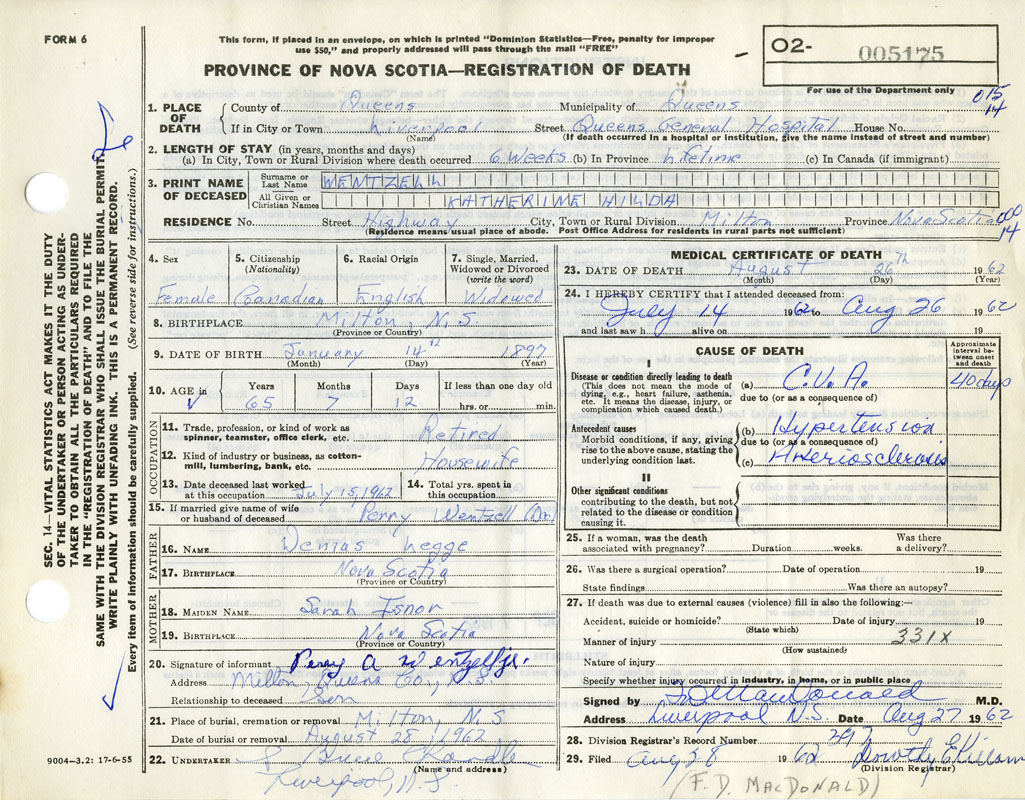 FORM 6
This form, if placed in an envelope, on which is printed "Dominion Statistics—Free, penalty for improper
use $50," and properly addressed will pass through the mail "FREE"
O2- 005175
For use of the Department only
PROVINCE OF NOVA SCOTIA—REGISTRATION OF DEATH
015
14
1. PLACE OF DEATH
County of Queens Municipality of Queens
If in City or Town Liverpool Street Queens General Hospital House No.
(Name) (If death occurred in a hospital or institution, give the name instead of street and number)
2. LENGTH OF STAY (in years, months and days)
(a) In City, Town or Rural Division where death occurred 6 Weeks (b) In Province Lifetime (c) In Canada (if immigrant)
3. PRINT NAME OF DECEASED
Surname or Last Name WENTZELL
All Given or Christian Names KATHERINE HILDA
RESIDENCE No. Street Highway City, Town or Rural Division Milton Province Nova Scotia
(Residence means usual place of abode. Post Office Address for residents in rural parts not sufficient)
000
14
4. Sex
Female
5. Citizenship
(Nationality)
Canadian
6. Racial Origin
English
7. Single, Married,
Widowed or Divorced
(write the word)
Widowed
8. BIRTHPLACE Milton, N.S
(Province or Country)
9. DATE OF BIRTH January 14th 1897
(Month) (Day) (Year)
10. AGE in
Years Months Days If less than one day old
65 7 12 hrs. or min.
OCCUPATION
11. Trade, profession, or kind of work as
spinner, teamster, office clerk, etc. Retired
12. Kind of industry or business, as cotton-
mill, lumbering, bank, etc. Housewife
13. Date deceased last worked
at this occupation July 15, 1962
14. Total yrs. spent in
this occupation
15. If married give name of wife
or husband of deceased Perry Wentzell (Dr.)
FATHER
16. NAME Legge
17. BIRTHPLACE Nova Scotia
(Province or Country)
MOTHER
18. MAIDEN NAME Sarah Isnor
19. BIRTHPLACE Nova Scotia
(Province or Country)
20. Signature of informant Perry A Wentzell jr.
Address Milton, Queens Co., N.S.
Relationship to deceased Son
21. Place of burial, cremation or removal Milton, N.S
Date of burial or removal August 28, 1962
22. UNDERTAKER
(Name and address)
Liverpool, N.S.
9004—3.2: 17-6-55
MEDICAL CERTIFICATE OF DEATH
23. DATE OF DEATH August 26th 1962
(Month) (Day) (Year)
24. I HEREBY CERTIFY that I attended deceased from:
July 14 1962 to Aug 26 1962
and last saw h alive on 19
CAUSE OF DEATH
Approximate
interval be-
tween onset
and death
I
Disease or condition directly leading to death
(This does not mean the mode of
dying, e.g., heart failure, asthenia,
etc. It means the disease, injury, or
complication which caused death.)
(a) C.V.A. 40 days
due to (or as a consequence of)
Antecedent causes
Morbid conditions, if any, giving
rise to the above cause, stating the
underlying condition last.
(b) Hypertension
due to (or as a consequence of)
(c) Arteriosclerosis
II
Other significant conditions
contributing to the death, but not
related to the disease or condition
causing it.
25. If a woman, was the death Was there
associated with pregnancy? Duration weeks. a delivery?
26. Was there a surgical operation? Date of operation 19
State findings Was there an autopsy?
27. If death was due to external causes (violence) fill in also the following:—
Accident, suicide or homicide? Date of injury 19
(State which)
Manner of injury 331X
(How sustained)
Nature of injury
Specify whether injury occurred in industry, in home, or in public place
Signed by F D MacDonald M.D.
Address Liverpool N.S. Date Aug 27 1962
28. Division Registrar's Record Number
29. Filed Aug 28 1962 Dorothy E Killam
(Division Registrar)
(F. D. MACDONALD)
SEC. 14—VITAL STATISTICS ACT MAKES IT THE DUTY
OF THE UNDERTAKER OR PERSON ACTING AS UNDER-
TAKER TO OBTAIN ALL THE PARTICULARS REQUIRED
IN THE "REGISTRATION OF DEATH" AND TO FILE THE
SAME WITH THE DIVISION REGISTRAR WHO SHALL ISSUE THE BURIAL PERMIT.
WRITE PLAINLY WITH UNFADING INK. THIS IS A PERMANENT RECORD.
Every item of information should be carefully supplied. (See reverse side for instructions.)